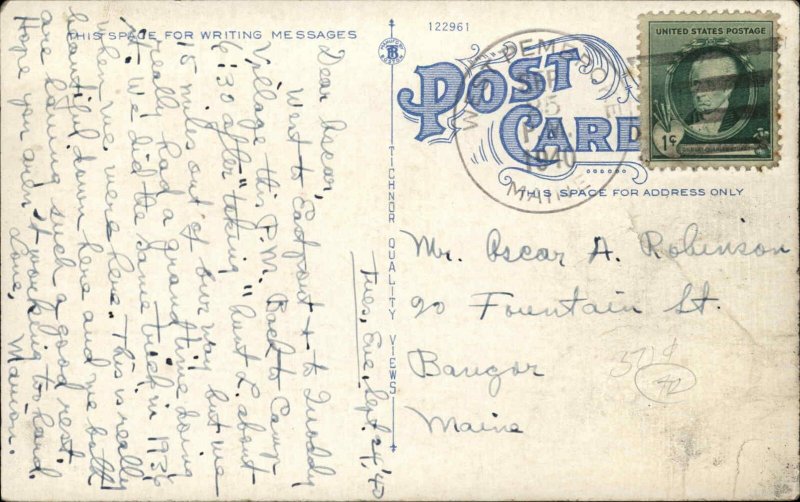 THIS SPACE FOR WRITING MESSAGES
Tues. Eve. Sept. 24, '40
Dear Oscar,
Went to Eastport & to Quoddy
Village this P.M. Back to Camp
6:30 after "taking" about
15 miles out of our way but we
really had a grand time doing
it. We did the same trick in 1936
when we were here. This is really
beautiful down here and we both
are having such a good rest.
Hope you aren't working too hard.
Love, Marion.
122961
TICHNOR QUALITY VIEWS
POST
CARD
THIS SPACE FOR ADDRESS ONLY
UNITED STATES POSTAGE
1¢
25
1940
MAINE
Mr. Oscar A. Robinson
90 Fountain St.
Bangor
Maine